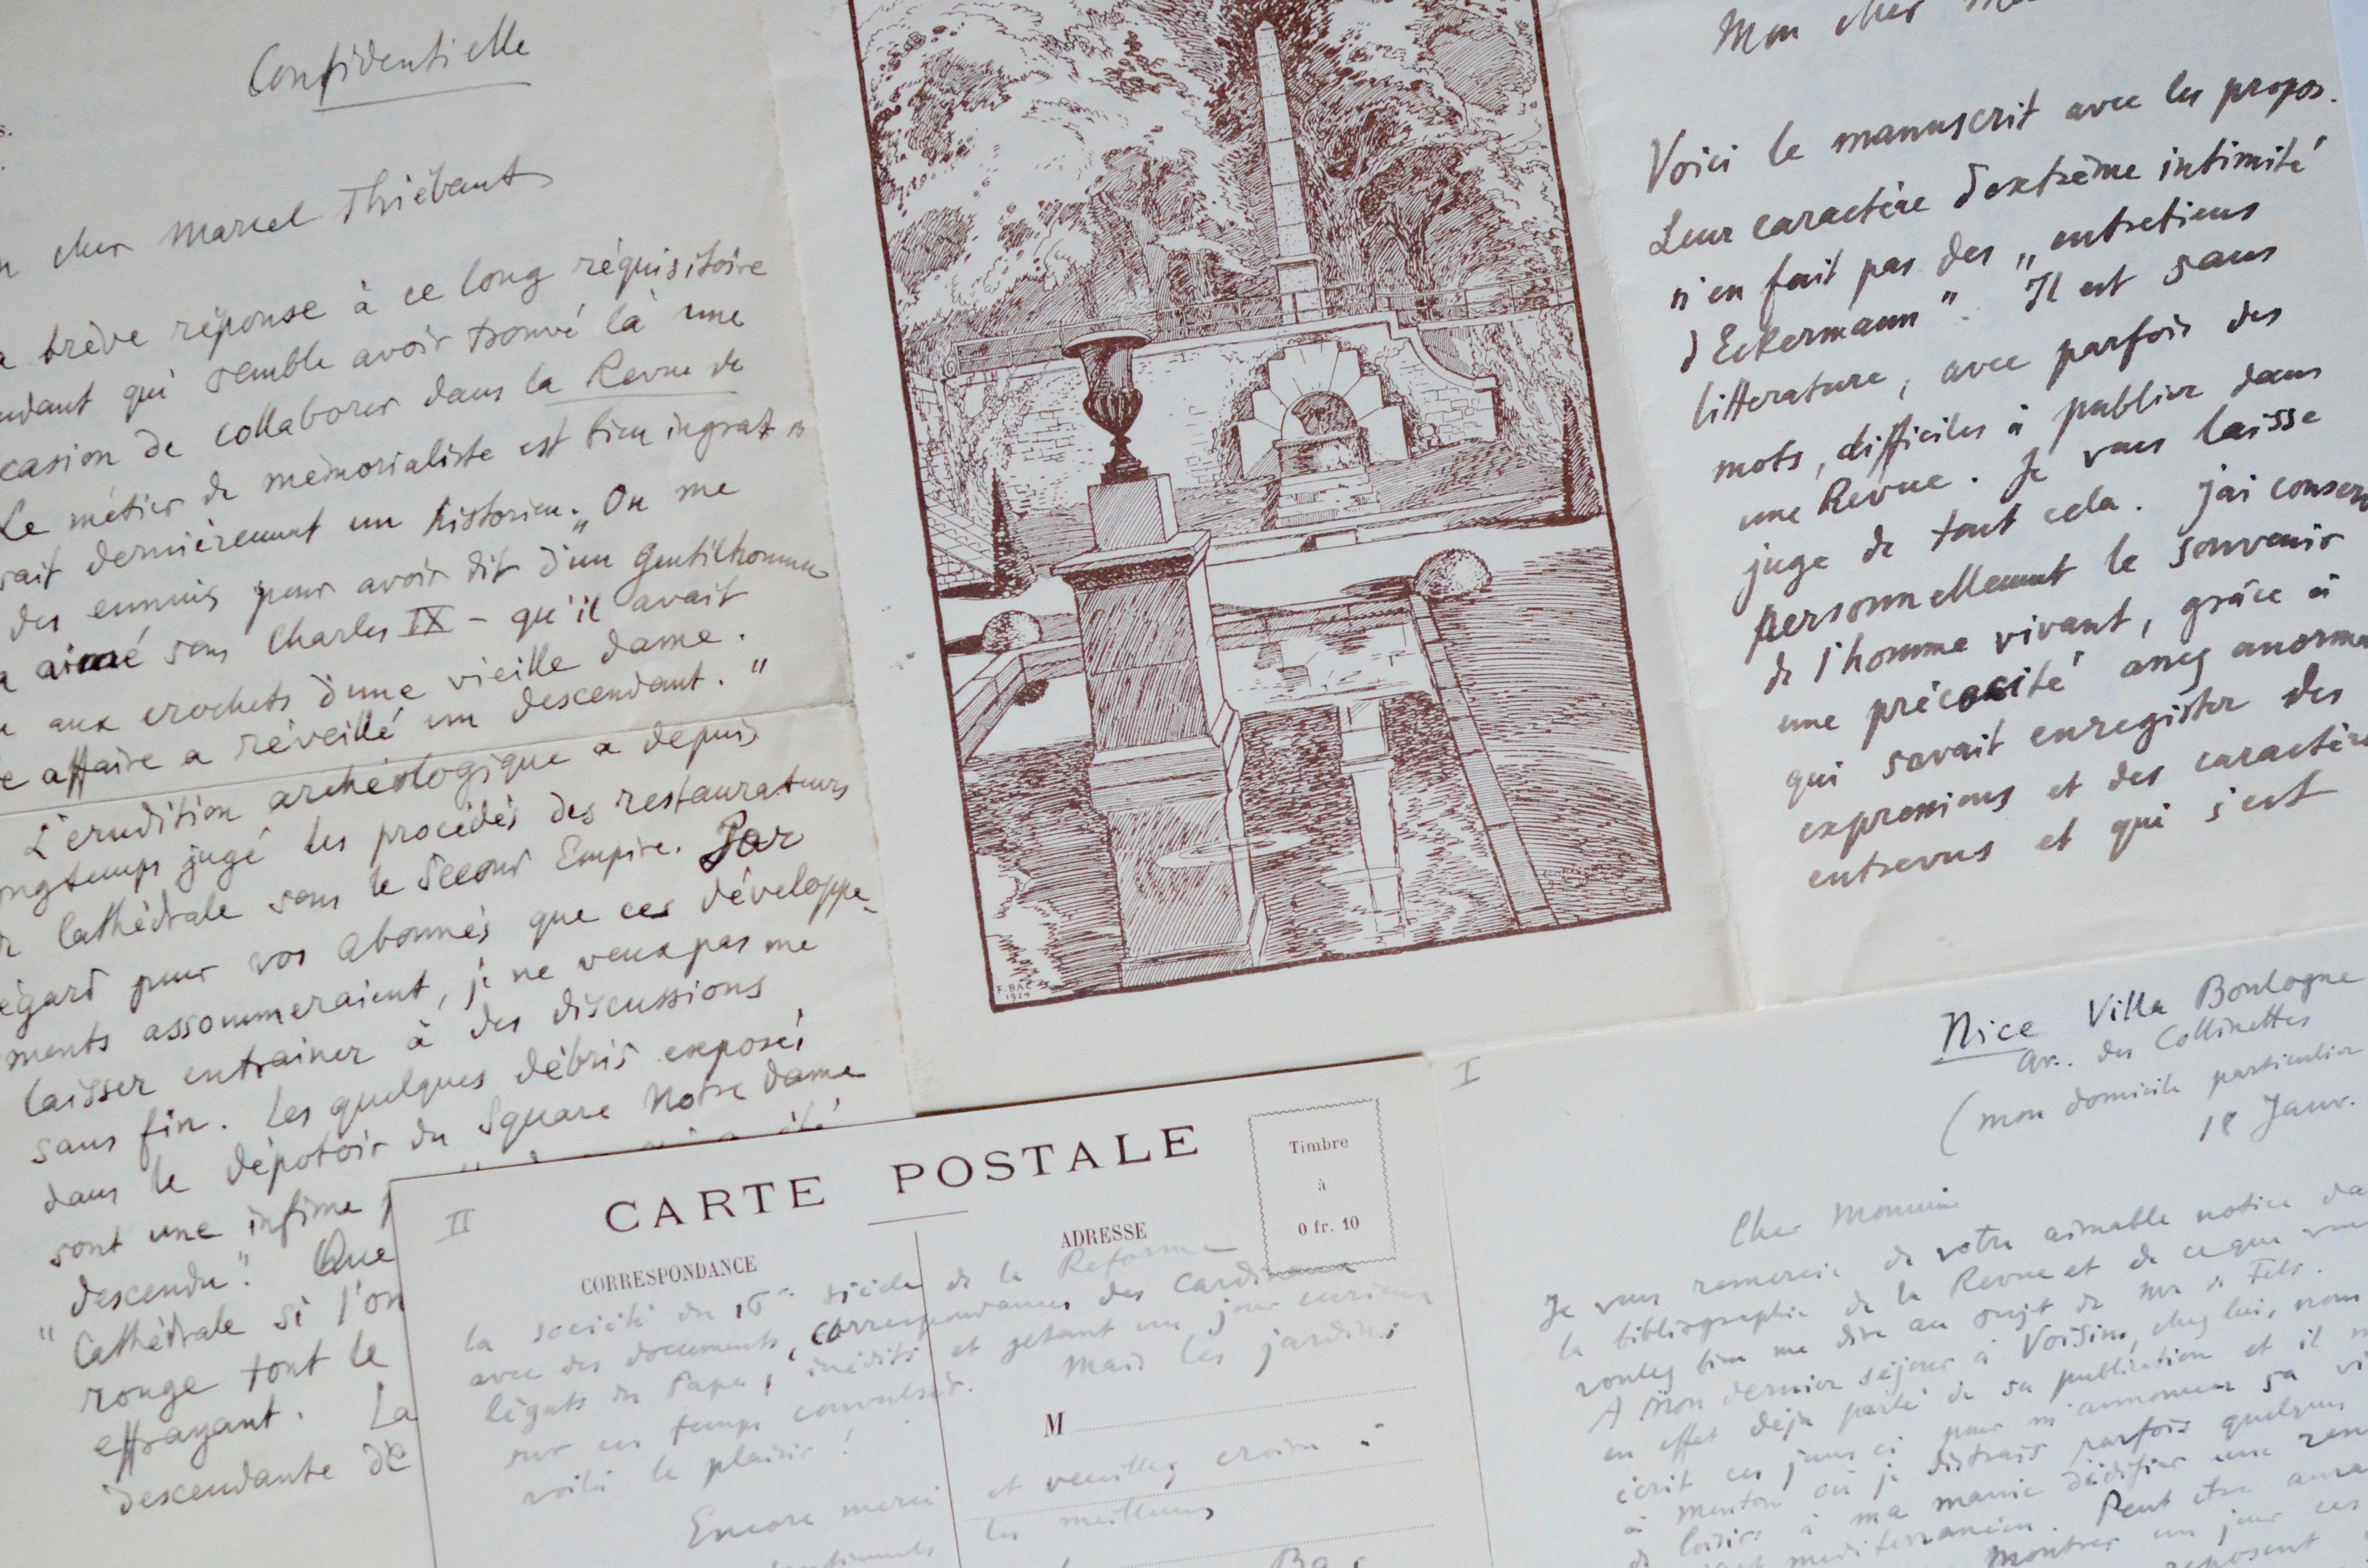 Confidentielle
cher Marcel Thiébaut
brève réponse à ce long réquisitoire
qui semble avoir trouvé là une
casion de collaborer dans la Revue de
Le métier de mémorialiste est bien ingrat »
sait dernièrement un historien. „On me
des ennuis pour avoir dit d'un Gentilhomme
aimé sous Charles IX – qu'il avait
aux crochets d'une vieille dame.
e affaire a réveillé un descendant."
L'erudition archéologique a depuis
ongtemps jugé les procédés des restaurateurs
Cathédrale sous le Second Empire. Par
égard pour vos abonnés que ces développe-
ments assommeraient, je ne veux pas me
laisser entrainer à des discussions
sans fin. Les quelques débris exposés
dans le dépotoir du Square Notre Dame
sont une infime
"descendu". Que
Cathédrale si l'on
rouge tout le
effrayant. La
descendante de
F. BAC
1924
Mon cher
Voici le manuscrit avec les propos.
Leur caractère d'extrème intimité
n'en fait pas des „entretiens
d'Eckermann". Il est sans
litterature, avec parfois des
mots, difficiles à publier dans
une Revue. Je vous laisse
juge de tout cela. J'ai conserv
personnellement le souvenir
de l'homme vivant, grâce à
une précocité assez anorma
qui savait enregistrer des
expressions et des caractère
entrevus et qui s'est
II
CARTE POSTALE
Timbre
à
0 fr. 10
CORRESPONDANCE
ADRESSE
la société du 16e siècle de la Reforme
avec des documents, correspondances des Cardinaux
légats du Pape, inédits et jetant un jour curieux
sur ces temps convulsés. Mais les jardins
voilà le plaisir !
M
Encore merci et veuillez croire
les meilleurs
Bac
I
Nice Villa Boulogne
av. des Collinettes
(mon domicile particulier
18 Janv.
Cher Monsieur
Je vous remercie de votre aimable notice da
la bibliographie de la Revue et de ce que vous
voulez bien me dire au sujet de Mr de Fels.
A mon dernier séjour à Voisins, chez lui, nous
en effet déjà parlé de sa publication et il m
écrit ces jours ci pour m'annoncer sa vi
à Menton où je distrais parfois quelques
de loisirs à ma manie d'édifier une
mediterranéen. Peut etre
montrer un jour ces